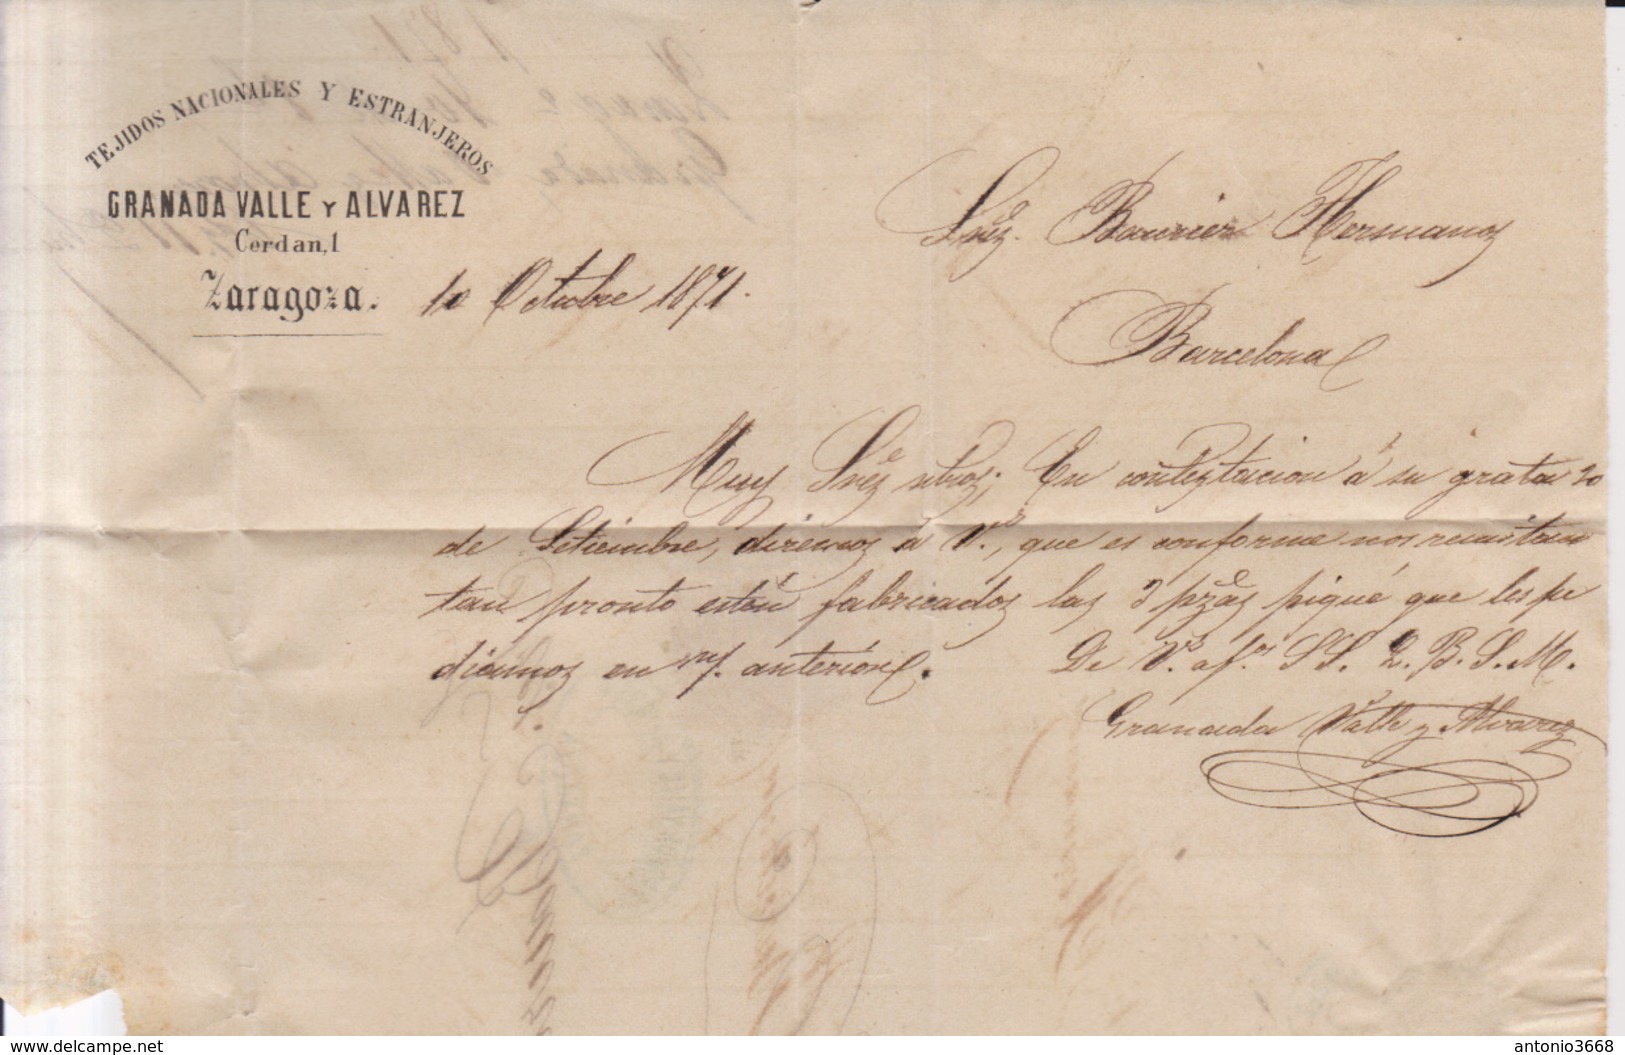 TEJIDOS NACIONALES Y ESTRANJEROS
GRANADA VALLE Y ALVAREZ
Cerdan, 1
Zaragoza.
10 Octubre 1871.
Sres. Bourier Hermanos
Barcelona
Muy Sres ntros; En contestacion á su grata 20
de Setiembre, diremos a V.s, que es conforme nos remitan
tan pronto estén fabricados las 3 pzas piqué que les pe
diamos en n/. anterior.
De V.s af.os SS. Q. B. S. M.
Granada Valle y Alvarez
delcampe.net
antonio3668